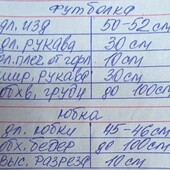 Футболка
дл. изд 50-52 см
дл. рукава 30 см
дл. плеч. от горл. 10 см
шир. рукава 30 см
обхв. груди до 100 см
Юбка
дл. юбки 45-46 см
обх. бедер до 100 см
выс. разреза 10 см